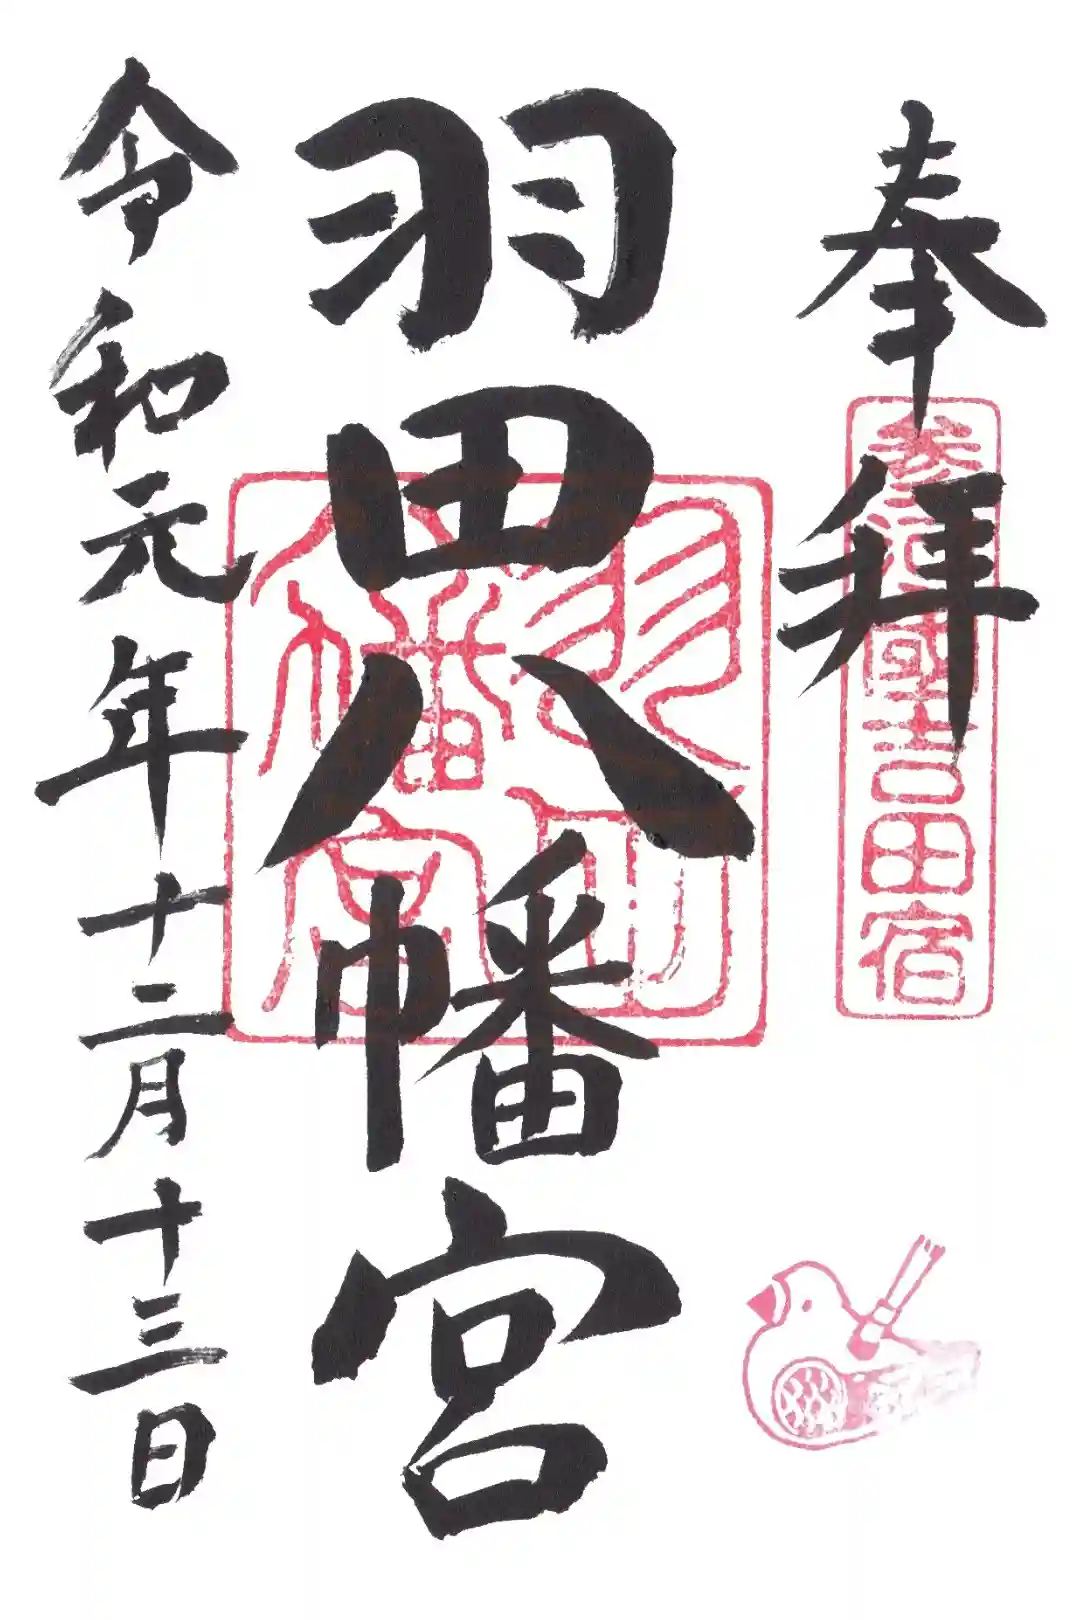 奉拝
参河国吉田宿
羽田八幡宮
羽田八幡宮
令和元年十二月十三日